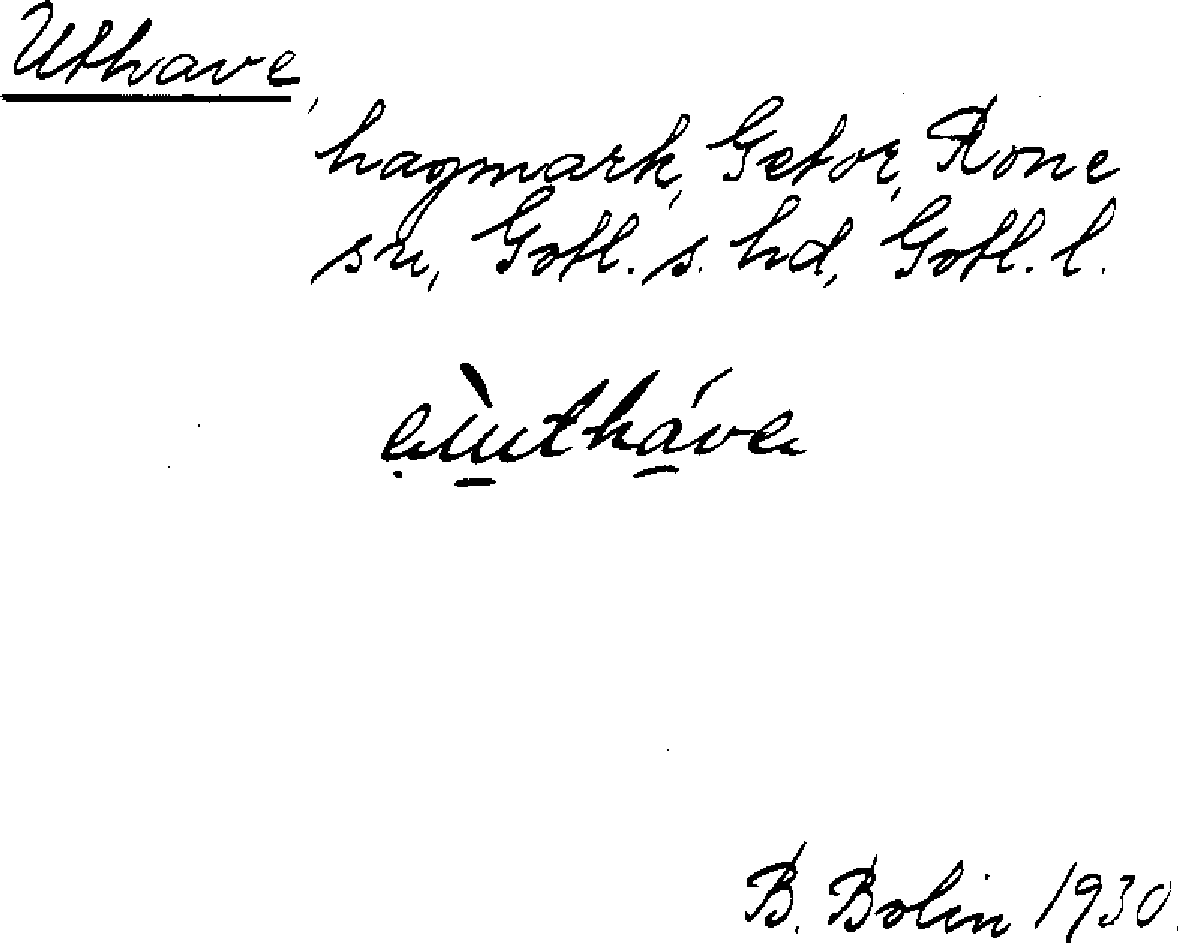 Uthave,
hagmark, Getor, Rone
sn, Gotl. s. hd, Gotl. l.
B. Bolin 1930.